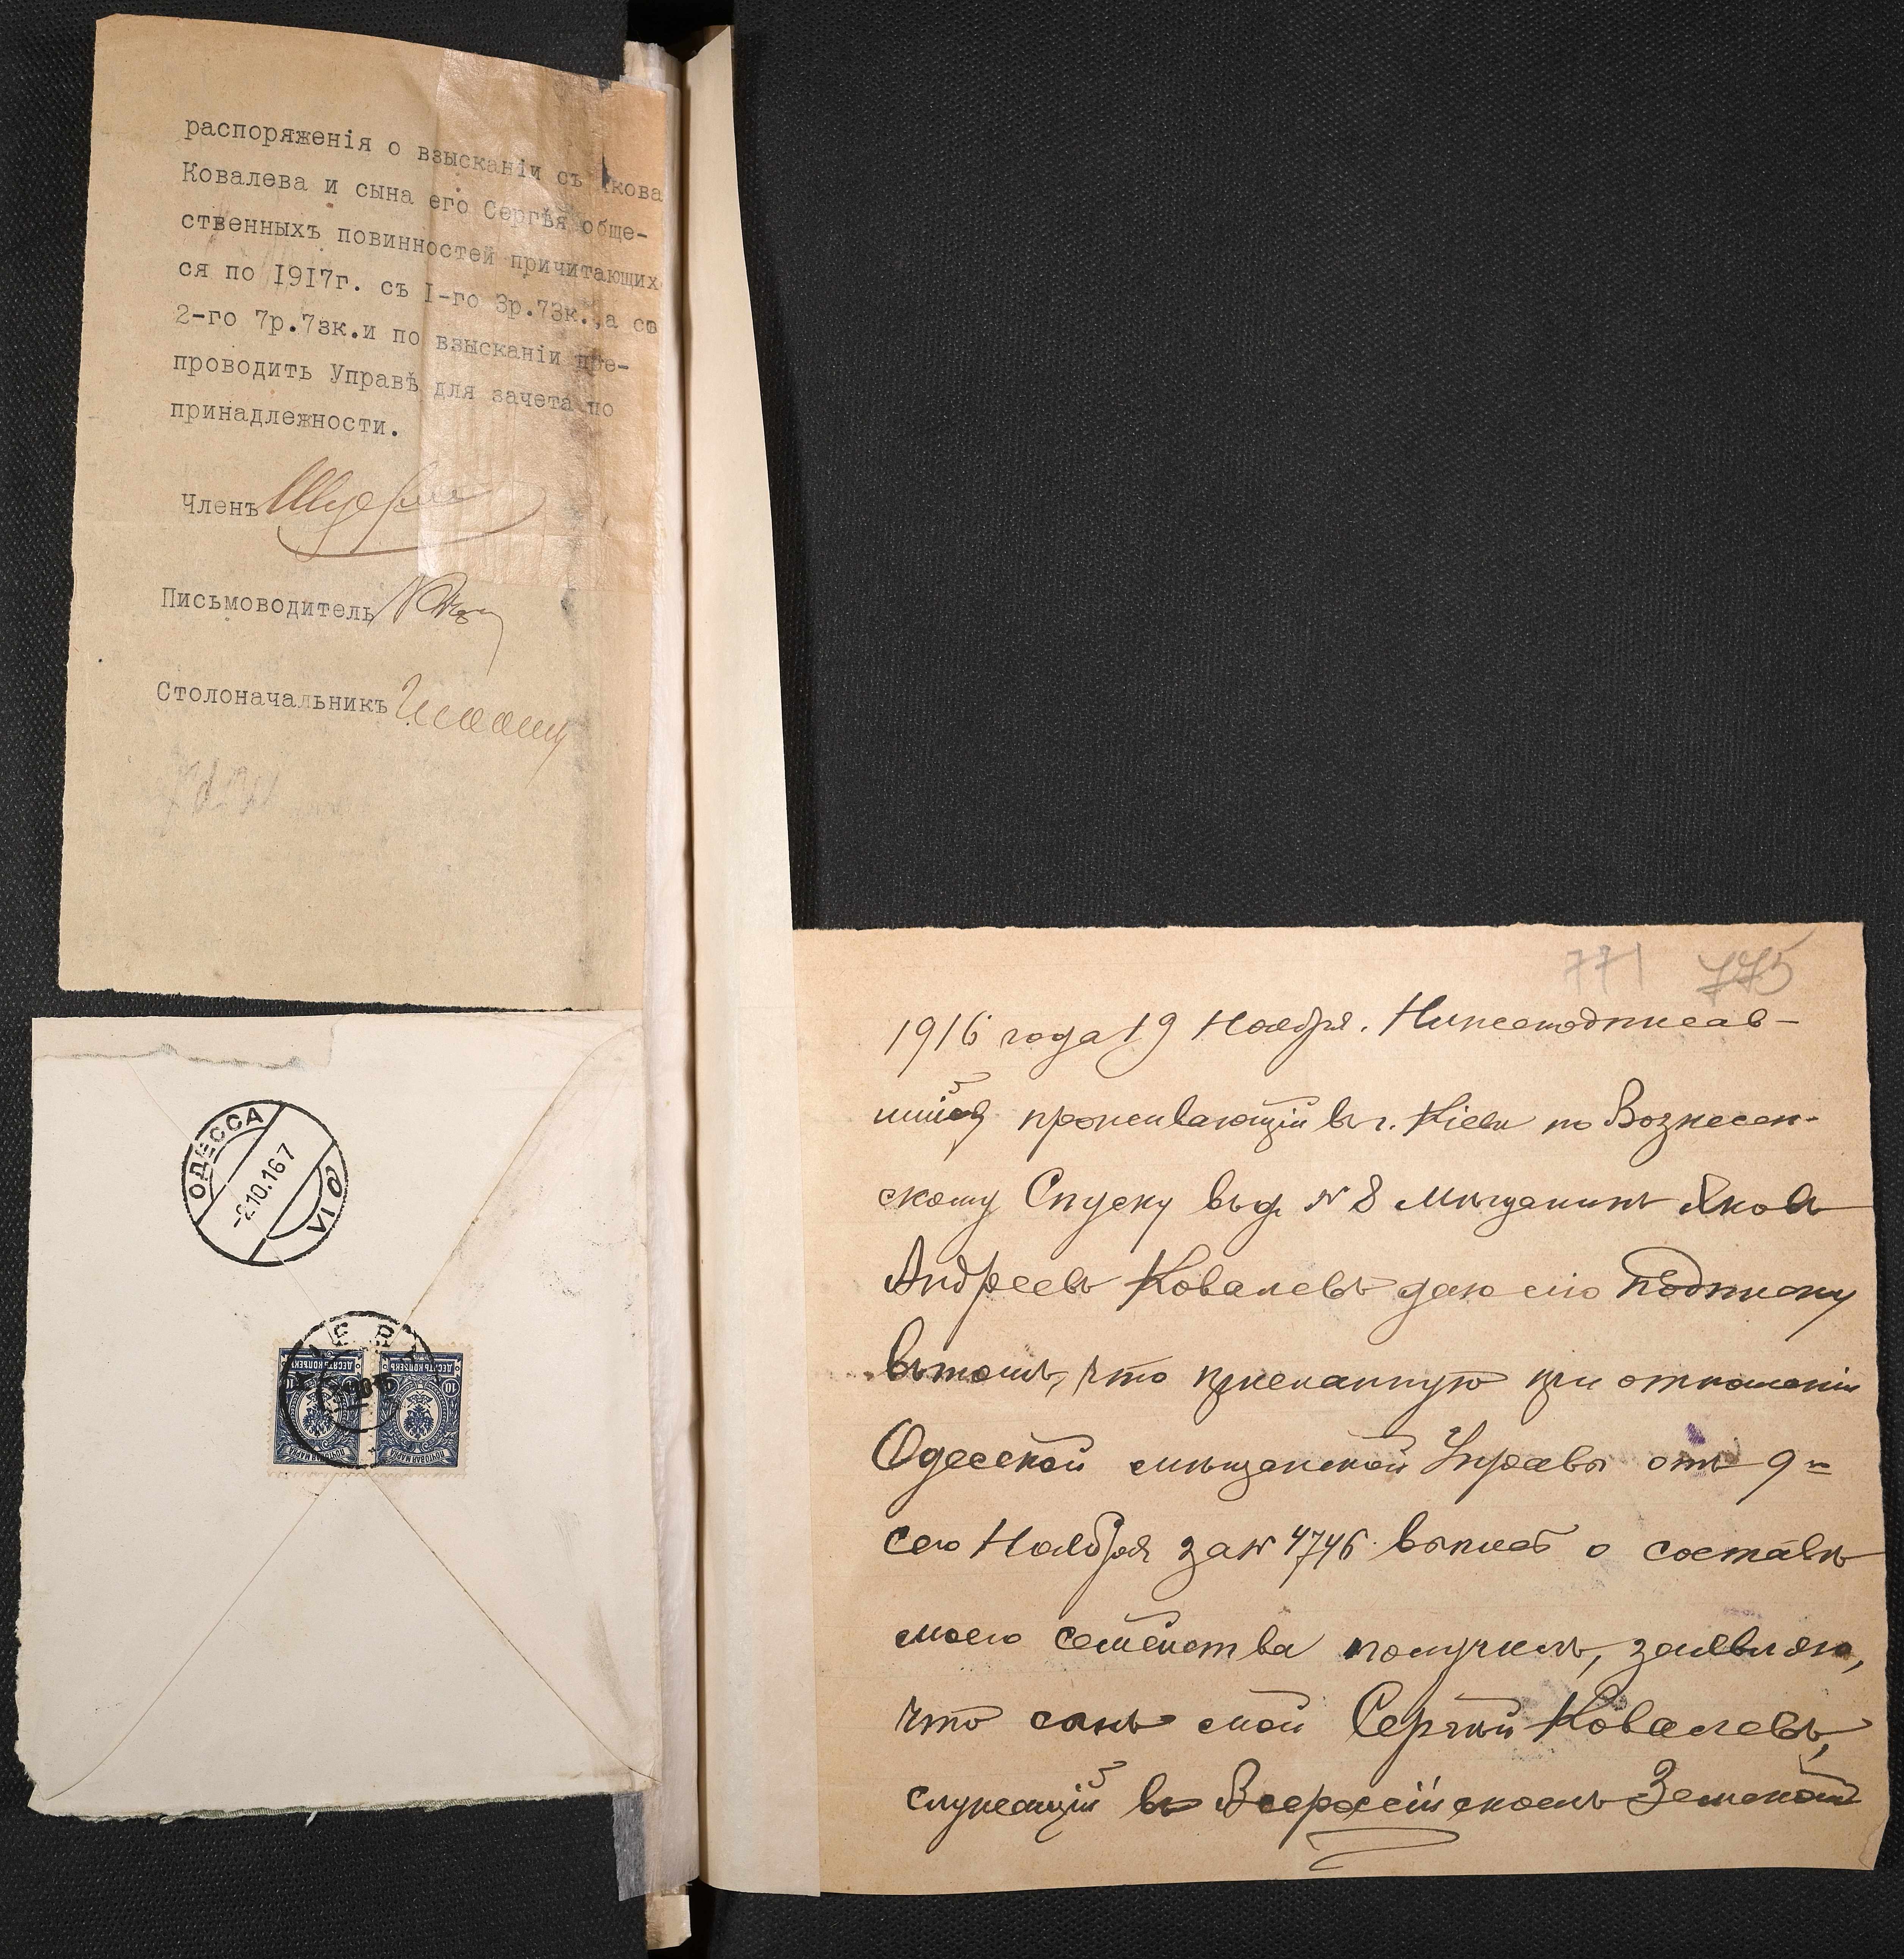 распоряженія о взысканіи съ Якова
Ковалева и сына его Сергѣя обще-
ственныхъ повинностей причитающих
ся по 1917г. съ 1-го 3р.73к.,а со
2-го 7р.73к.и по взысканіи пре-
проводить Управѣ для зачета по
принадлежности.
Членъ
Письмоводитель
Столоначальникъ
ОДЕССА
-2.10.16 7
VI
КІЕВЪ
ДЕСЯТЬ КОПѢЕКЪ ДЕСЯТЬ КОПѢЕКЪ
10 10 10
ПОЧТОВАЯ МАРКА ПОЧТОВАЯ МАРКА
771 775
1916 года 19 Ноября. Нижеподписав-
шійся проживающій въ г. Кіевѣ по Вознесен-
скому Спуску въ д. № 8 мѣщанинъ Яковъ
Андреевъ Ковалевъ даю сію подписку
въ томъ, что присланную при отношеніи
Одесской мѣщанской Управы отъ 9го
сего Ноября за № 4746 выпись о составѣ
моего семейства получилъ, заявляю,
что сынъ мой Сергѣй Ковалевъ,
служащій въ Всероссійскомъ Земскомъ